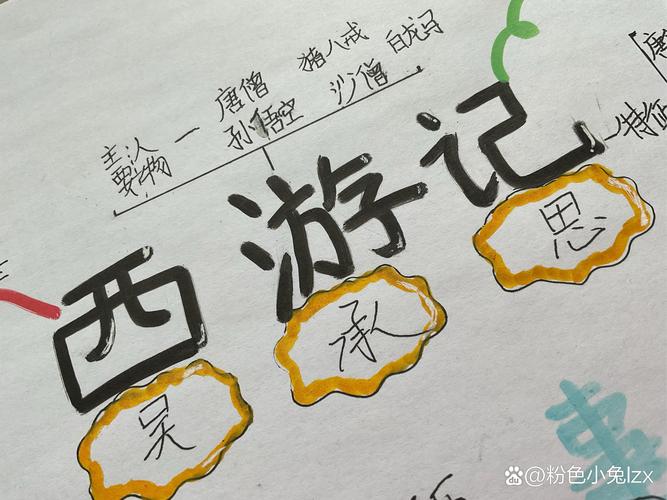 主要人物 — 唐僧 猪八戒 白龙马
孙悟空 沙僧
西游记
吴承恩
特
@粉色小兔lzx